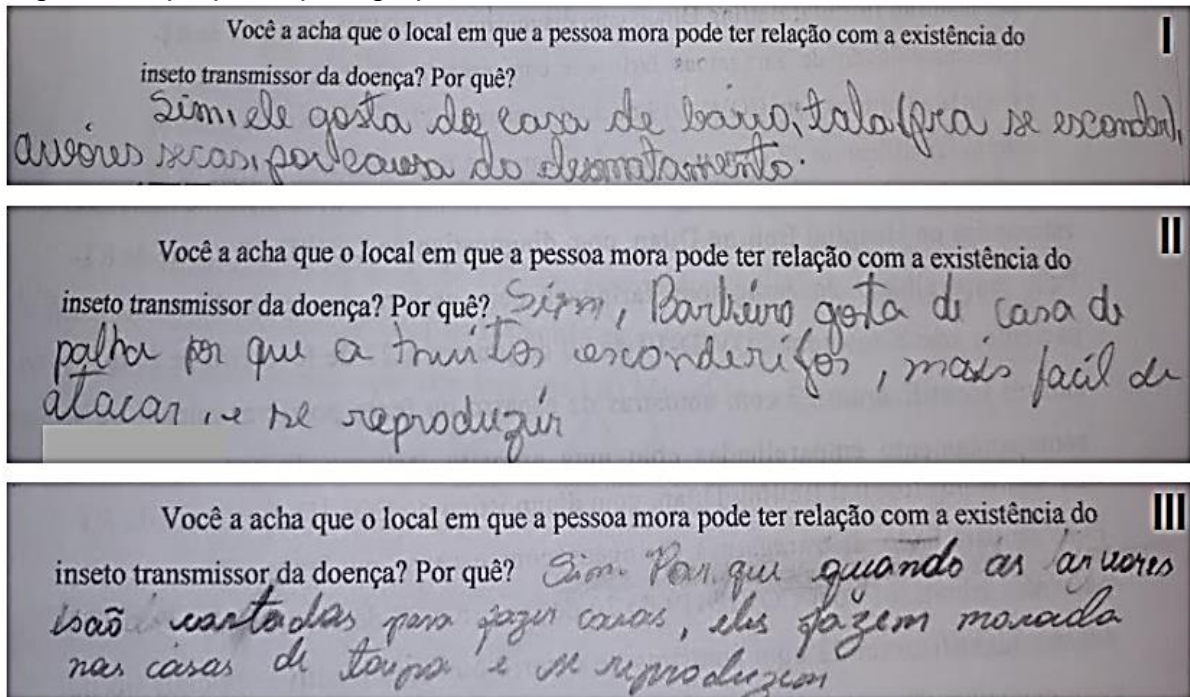 I
Você a acha que o local em que a pessoa mora pode ter relação com a existência do
inseto transmissor da doença? Por quê?
Sim, ele gosta de casa de bairo, tala (pra se esconder),
arvores secas, por causa do desmatamento.
II
Você a acha que o local em que a pessoa mora pode ter relação com a existência do
inseto transmissor da doença? Por quê? Sim, Barbeiro gota de casa de
palha por que a muitos esconderijos, mais facíl de
atacar, e se reproduzír
III
Você a acha que o local em que a pessoa mora pode ter relação com a existência do
inseto transmissor da doença? Por quê? Sim. Por que quando as arvores
saõ cortadas para fazer casas, eles fazem morada
nas casas de taipa e se reproduzem